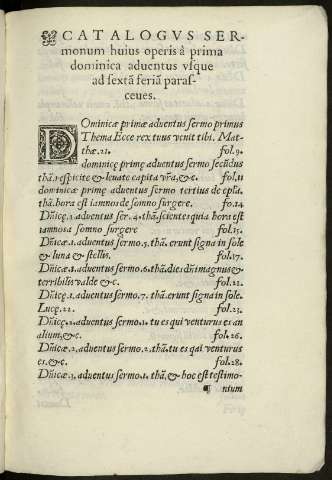 CATALOGVS SER-
monum huius operis à prima
dominica aduentus vsque
ad sextã feriã parasceues.
DOminicæ primæ aduentus sermo primus
Thema Ecce rex tuus venit tibi. Mat-
thæ.21. fol.9.
dominicę primę aduentus sermo secũdus
thã.respicite & leuate capita vr̃a,&c. fol.11
dominicæ primę aduentus sermo tertius de epl̃a.
thã.hora est iam nos de somno surgere. fo.14
Dñicę.1.aduentus ser.4.thã.scientes quia hora est
iam nos a somno surgere fol.15.
Dñicæ.1.aduentus sermo.5.thã.erunt signa in sole
& luna & stellis. fol.17.
Dñicæ.1.aduentus sermo.6.thã.dies dñi magnus &
terribilis valde &c. fol.21.
Dñicę.1.aduentus sermo.7.thã.erunt signa in sole.
Lucę.21. fol.23.
Dñicę.2.aduentus sermo.1.tu es qui venturus es an
alium,&c. fol.26.
Dñicæ.2.aduentus sermo.2.thã.tu es qui venturus
es.&c. fol.28.
Dñicæ.3.aduentus sermo.1.thã.& hoc est testimo-
¶ nium